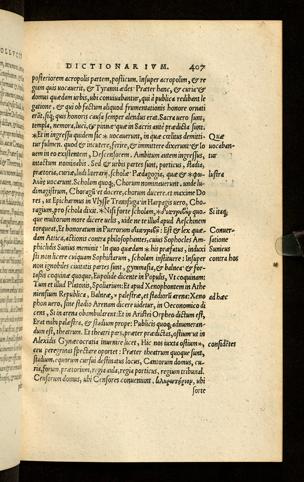 DICTIONARIVM. 407
posteriorem acropolis partem, posticum. insuper acropolim, & re
gum quis vocauerit, & Tyranni ædes. Præter hanc, & curia &
domus quædam urbis, ubi conuiuabantur, qui à publica redibant le
gatione, & qui ob factum aliquod frumentationis honore ornati
erāt, siq; quis honoris causa semper alendus erat. Sacra vero sunt,
templa, nemora, luci, &
Et in ingressu quidem sic vocauerunt, in quæ cœlitus demitti-
tur fulmen. quod & incutere, ferire, & immittere dixerunt: & Io
uem in eo existentem, Descensorem. Ambitum autem ingressus,
intactum nominabis. Sed & urbis partes sunt, porticus, stadia,
prætoria, curiæ, ludi literarij, scholæ Pædagogia, quæ &
vocant. Scholam quoq; Chorum nominauerunt, unde lu
dimagistrum, Choragū et docere, chorum docere. et maxime Do
res, ut Epicharmus in Vlysse Transfuga: in Harpagis vero, Cho-
ragium, pro schola dixit. Nisi forte scholam, quo-
que multorum more dicere uelis, vide ne tale illud apud Aeschinem
torqueat, Et honoratum in Puerorum Est & lex quæ-
dam Attica, actionis contra philosophantes, cuius Sophocles Am-
phiclidis Sunius meminit: In qua quædam his præfatus, induxit
non licere cuiquam Sophistarum, scholam instituere: Insuper
non ignobiles ciuitatis partes sunt, gymnasia, & balneæ & for-
tassis coquinæ quoque, Eupolide dicente in Populis, Vt coquinam:
Tum et illud Platonis, Spoliarium: Et apud Xenophontem in Athe
niensium Republica, Balneæ, palestræ, et stadiorū arenæ: Xeno
phon uero, sine stadio Arenam dicere uidetur, in Oeconomico di
cens, Si in arena obambularent: Et in Aristei Orpheo dictum est,
Erat mihi palestra, & stadium prope: Publicis quoq; adnumeran-
dum est, theatrum. Et theatri pars, præter prædictas, ostium ut in
Alexidis Gynæcratia inuenire licet, Hic nos iuxta ostium,
ceu peregrinas spectare oportet: Præter theatrum quoque sunt,
stadium, equorum cursui destinatus locus, Cantorum domus, cu-
ria, forum, prætorium, regia aula, regis porticus, regium tribunal.
Censorum domus, ubi Censores conuenerunt, ubi
forte
Quæ
vocaban-
tur
Si itaq;
Conuer-
satione
Sunicus
contra hos
ad hæc